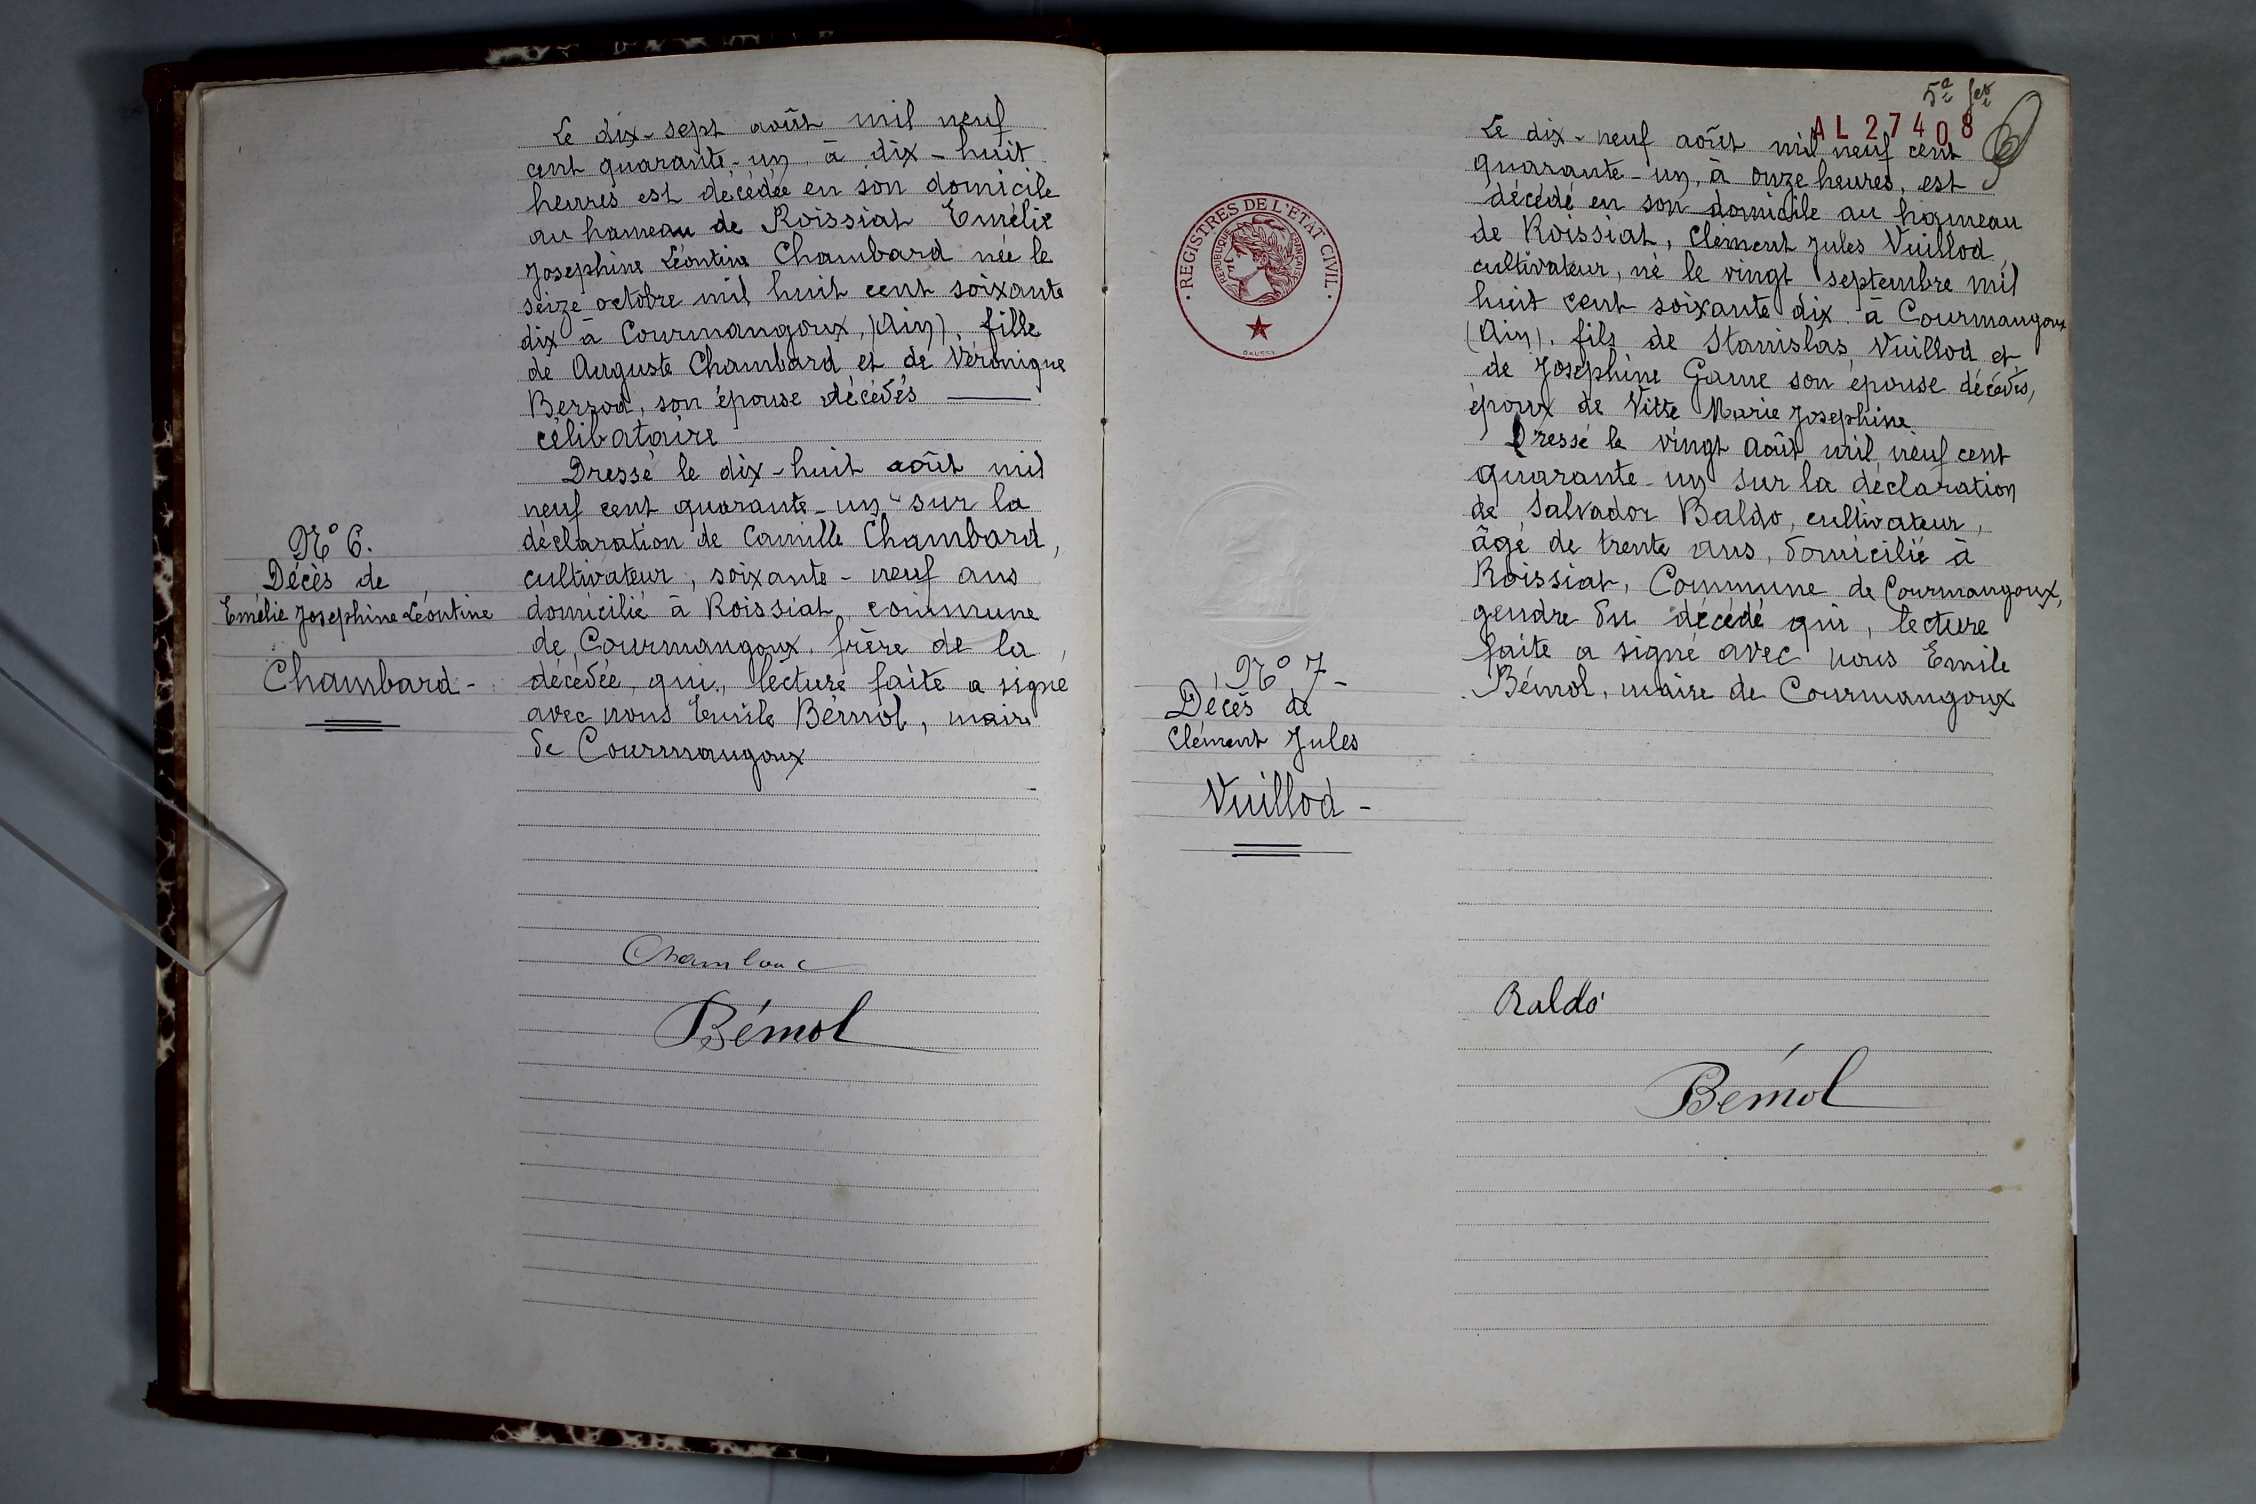 Le dix-sept août mil neuf
cent quarante-un, à dix-huit
heures est décédée en son domicile
au hameau de Roissiat Emélie
Josephine Léontine Chambard née le
seize octobre mil huit cent soixante
dix à Courmangoux, (Ain), fille
de Auguste Chambard et de Véronique
Berrod, son épouse décédés
célibataire
Dressé le dix-huit août mil
neuf cent quarante-un sur la
déclaration de Camille Chambard,
cultivateur, soixante-neuf ans
domicilié à Roissiat, commune
de Courmangoux, frère de la
décédée, qui, lecture faite a signé
avec nous Emile Bémol, maire
de Courmangoux
N° 6.
Décès de
Emélie Josephine Léontine
Chambard-
Bémol
5e
AL 27408
Le dix-neuf août mil neuf cent
quarante-un, à onze heures, est
décédé en son domicile au hameau
de Roissiat, Clément Jules Vuillod,
cultivateur, né le vingt septembre mil
huit cent soixante dix à Courmangoux
(Ain), fils de Stanislas Vuillod et
de Joséphine Game son épouse décédés,
époux de Vitte Marie Josephine.
Dressé le vingt août mil neuf cent
quarante-un sur la déclaration
de Salvador Baldo, cultivateur,
âgé de trente ans, domicilié à
Roissiat, Commune de Courmangoux,
gendre du décédé qui, lecture
faite a signé avec nous Emile
Bémol, maire de Courmangoux
REGISTRES DE L'ETAT CIVIL
REPUBLIQUE FRANÇAISE
N° 7-
Décès de
Clément Jules
Vuillod-
Baldo
Bémol